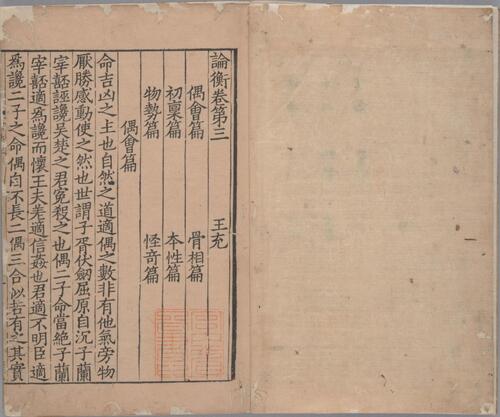 論衡卷第三
王充
偶會篇　骨相篇
初稟篇　本性篇
物勢篇　怪奇篇
偶會篇
命吉凶之主也自然之道適偶之數非有他氣旁物
厭勝感動使之然也世謂子胥伏劒屈原自沉子蘭
宰嚭誣讒吳楚之君寃殺之也偶二子命當絶子蘭
宰嚭適爲讒而懷王夫差適信姦也君適不明臣適
爲讒二子之命偶自不長二偶三合似若有之其實